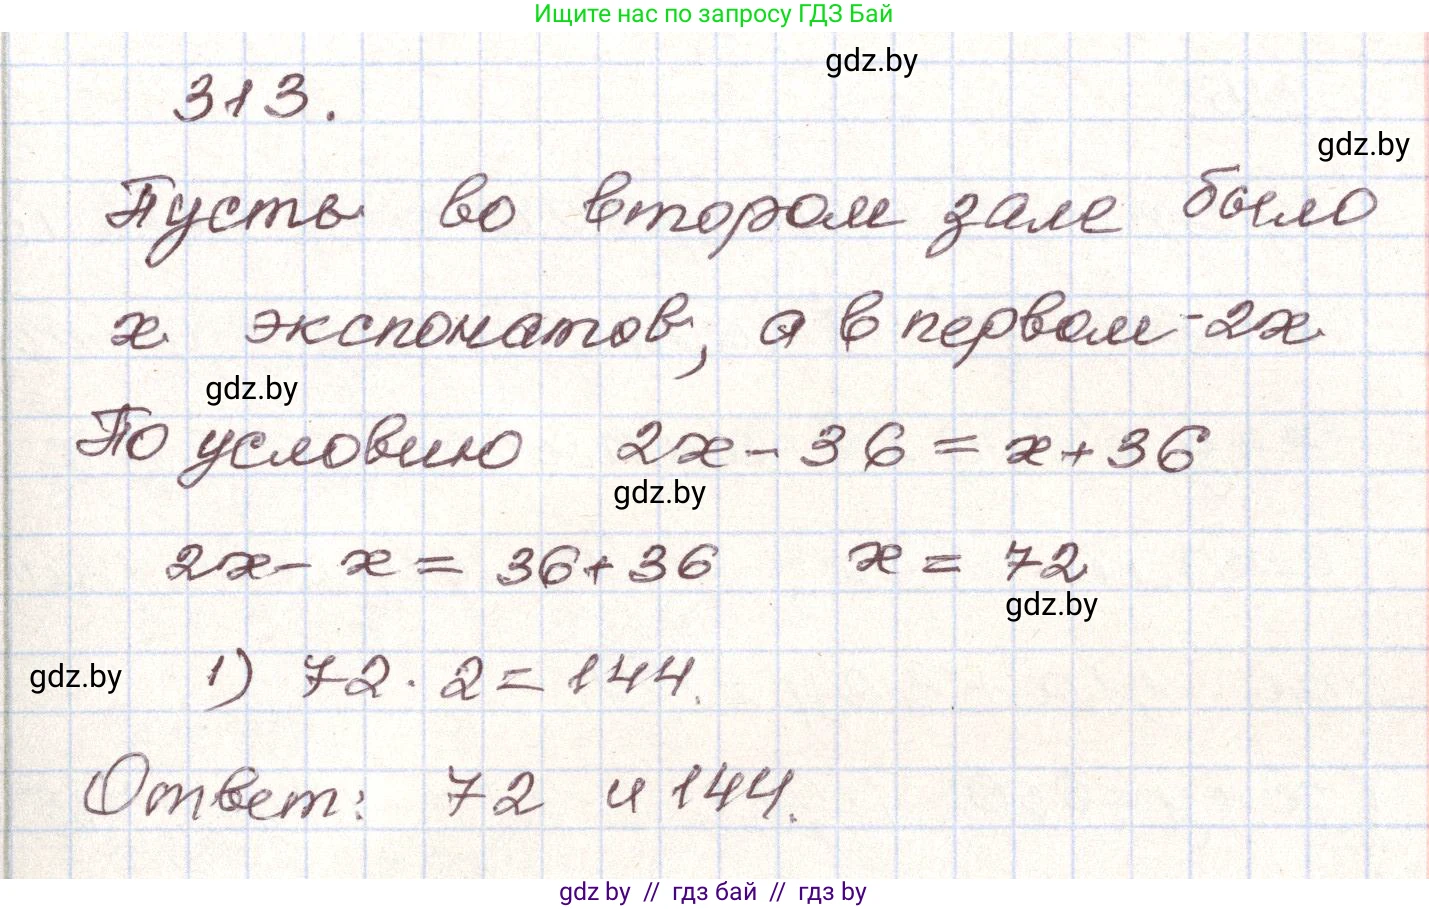 Ищите нас по запросу ГДЗ Бай
gdz.by
313.
gdz.by
Пусть во втором зале было
x экспонатов, а в первом - 2x
gdz.by
По условию 2x - 36 = x + 36
gdz.by
2x - x = 36 + 36 x = 72
gdz.by
gdz.by
1) 72 · 2 = 144.
Ответ: 72 и 144.
gdz.by // гдз бай // гдз by